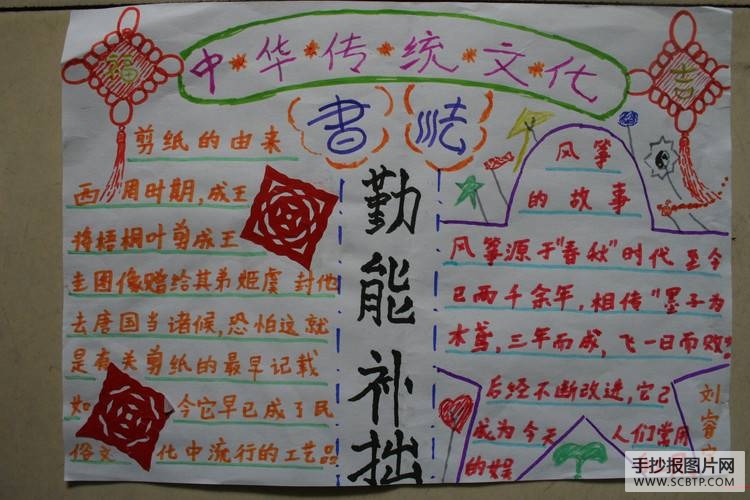 福
中华传统文化
吉
書法
剪纸的由来
西周时期,成王
将梧桐叶剪成王
圭图像赠给其弟姬虞 封他
去唐国当诸候,恐怕这就
是有关剪纸的最早记载
如今它早已成了民
俗文化中流行的工艺品
勤能补拙
风筝
的故事
风筝源于"春秋"时代 至今
已两千余年,相传"墨子为
木鸢,三年而成,飞一日而败"
后经不断改进,它已
成为今天人们常用
的娱
刘睿
手抄报图片网
WWW.SCBTP.COM